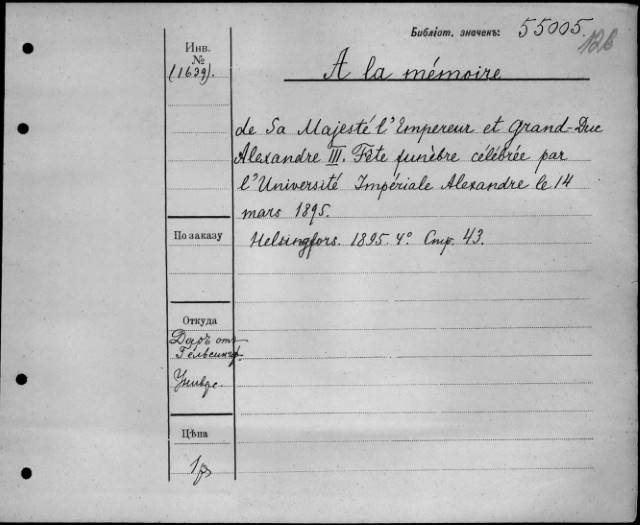 Библіот. значекъ: 55005.
126
Инв.
№
(1639).
A la mémoire
de Sa Majesté l'Empereur et Grand-Duc
Alexandre III. Fête funèbre célébrée par
l'Université Impériale Alexandre le 14
mars 1895.
Helsingfors. 1895. 4°. Стр. 43.
По заказу
Откуда
Даръ отъ
Гельсингф.
Универс.
Цѣна
1 р